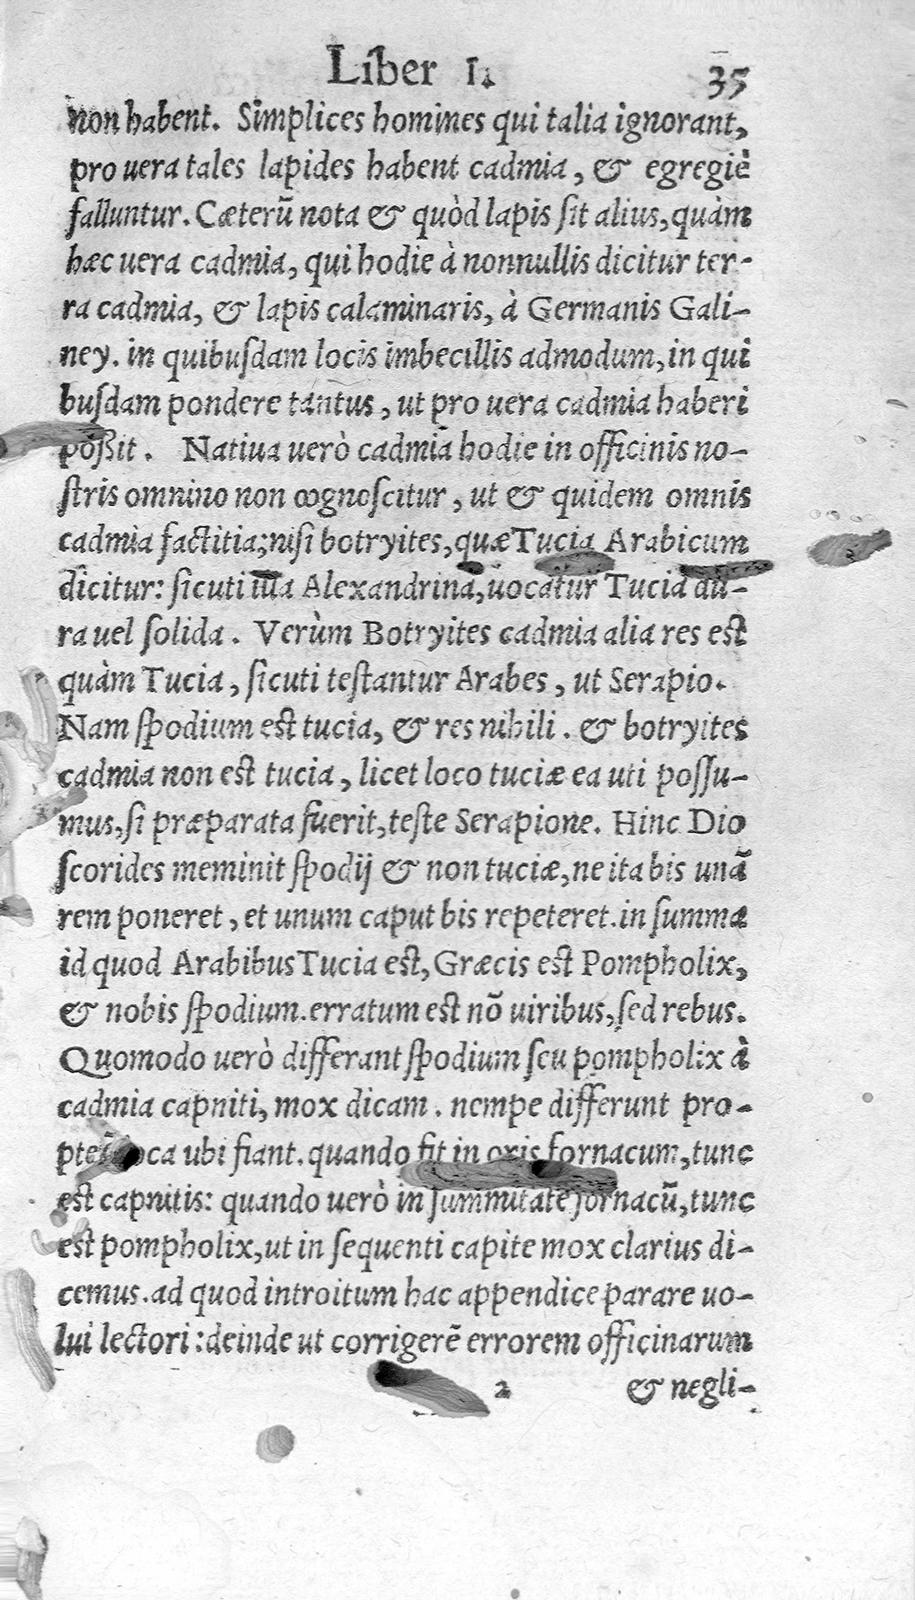 Liber I. 35
non habent. Simplices homines qui talia ignorant,
pro uera tales lapides habent cadmia, & egregiè
falluntur. Cæterũ nota & quòd lapis sit alius, quàm
hæc uera cadmia, qui hodie à nonnullis dicitur ter-
ra cadmia, & lapis calaminaris, à Germanis Gali-
ney. in quibusdam locis imbecillis admodum, in qui
busdam pondere tantus, ut pro uera cadmia haberi
poßit. Natiua uerò cadmia hodie in officinis no-
stris omnino non cognoscitur, ut & quidem omnis
cadmia factitia; nisi botryites, quæ Tucia Arabicum
dicitur: sicuti illa Alexandrina, uocatur Tucia du-
ra uel solida. Verùm Botryites cadmia alia res est
quàm Tucia, sicuti testantur Arabes, ut Serapio.
Nam spodium est tucia, & res nihili. & botryites
cadmia non est tucia, licet loco tuciæ ea uti possu-
mus, si præparata fuerit, teste Serapione. Hinc Dio
scorides meminit spodij & non tuciæ, ne ita bis unã
rem poneret, et unum caput bis repeteret. in summa
id quod Arabibus Tucia est, Græcis est Pompholix,
& nobis spodium. erratum est nõ uiribus, sed rebus.
Quomodo uerò differant spodium seu pompholix à
cadmia capniti, mox dicam. nempe differunt pro-
loca ubi fiant. quando fit in oris fornacum, tunc
est capnitis: quando uerò in summitate fornacũ, tunc
est pompholix, ut in sequenti capite mox clarius di-
cemus. ad quod introitum hac appendice parare uo-
lui lectori: deinde ut corrigerẽ errorem officinarum
2 & negli-